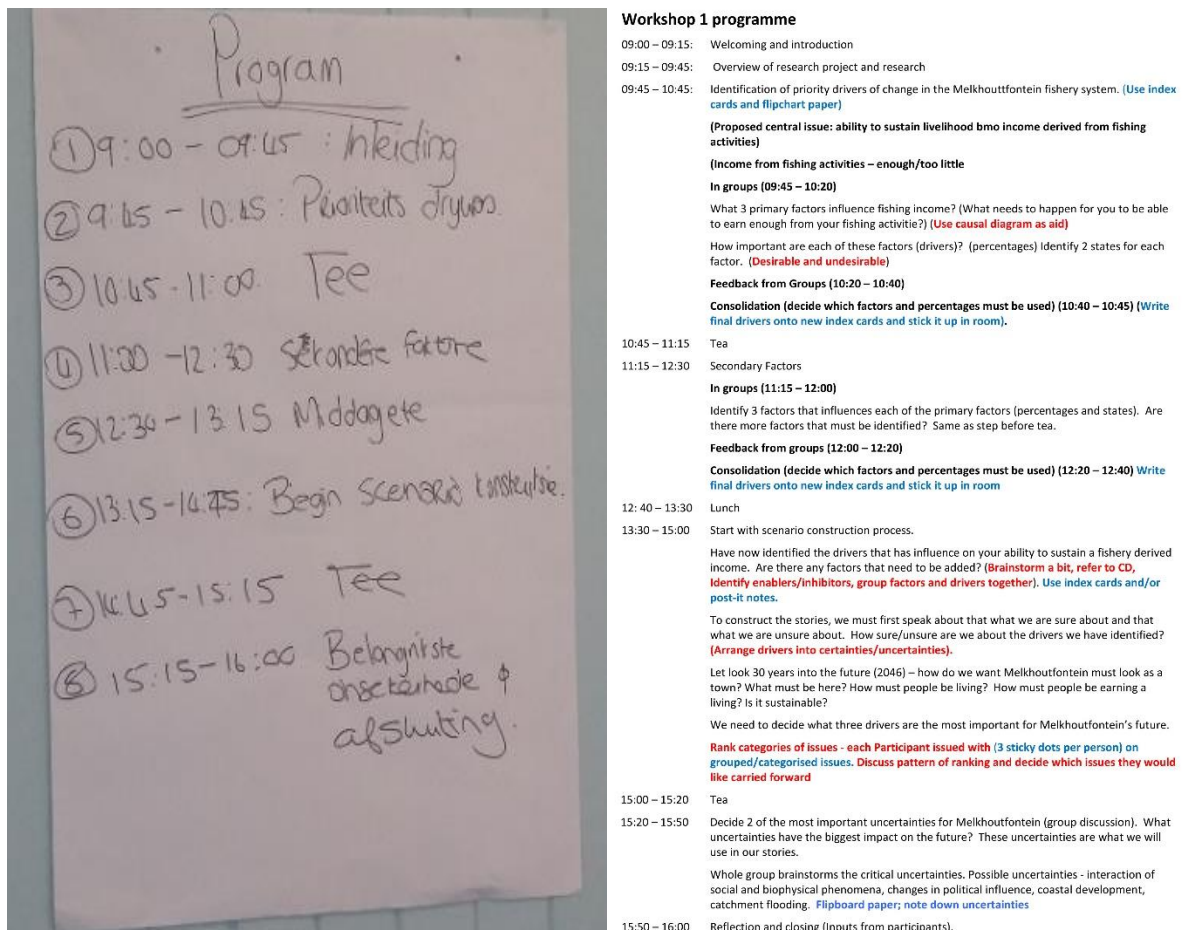 Program
① 9:00 – 09:45 : Inleiding
② 9:45 – 10:45 : Prioriteits drywes.
③ 10:45 - 11:00. Tee
④ 11:00 – 12:30 Sekondêre faktore
⑤ 12:30 – 13:15 Middagete
⑥ 13:15 – 14:45 : Begin Scenario konstruksie.
⑦ 14:45 – 15:15 Tee
⑧ 15:15 – 16:00 Belangrikste
onsekerhede &
afsluiting.
Workshop 1 programme
09:00 – 09:15: Welcoming and introduction
09:15 – 09:45: Overview of research project and research
09:45 – 10:45: Identification of priority drivers of change in the Melkhouttfontein fishery system. (Use index
cards and flipchart paper)
(Proposed central issue: ability to sustain livelihood bmo income derived from fishing
activities)
(Income from fishing activities – enough/too little
In groups (09:45 – 10:20)
What 3 primary factors influence fishing income? (What needs to happen for you to be able
to earn enough from your fishing activitie?) (Use causal diagram as aid)
How important are each of these factors (drivers)? (percentages) Identify 2 states for each
factor. (Desirable and undesirable)
Feedback from Groups (10:20 – 10:40)
Consolidation (decide which factors and percentages must be used) (10:40 – 10:45) (Write
final drivers onto new index cards and stick it up in room).
10:45 – 11:15 Tea
11:15 – 12:30 Secondary Factors
In groups (11:15 – 12:00)
Identify 3 factors that influences each of the primary factors (percentages and states). Are
there more factors that must be identified? Same as step before tea.
Feedback from groups (12:00 – 12:20)
Consolidation (decide which factors and percentages must be used) (12:20 – 12:40) Write
final drivers onto new index cards and stick it up in room
12: 40 – 13:30 Lunch
13:30 – 15:00 Start with scenario construction process.
Have now identified the drivers that has influence on your ability to sustain a fishery derived
income. Are there any factors that need to be added? (Brainstorm a bit, refer to CD,
Identify enablers/inhibitors, group factors and drivers together). Use index cards and/or
post-it notes.
To construct the stories, we must first speak about that what we are sure about and that
what we are unsure about. How sure/unsure are we about the drivers we have identified?
(Arrange drivers into certainties/uncertainties).
Let look 30 years into the future (2046) – how do we want Melkhoutfontein must look as a
town? What must be here? How must people be living? How must people be earning a
living? Is it sustainable?
We need to decide what three drivers are the most important for Melkhoutfontein's future.
Rank categories of issues - each Participant issued with (3 sticky dots per person) on
grouped/categorised issues. Discuss pattern of ranking and decide which issues they would
like carried forward
15:00 – 15:20 Tea
15:20 – 15:50 Decide 2 of the most important uncertainties for Melkhoutfontein (group discussion). What
uncertainties have the biggest impact on the future? These uncertainties are what we will
use in our stories.
Whole group brainstorms the critical uncertainties. Possible uncertainties - interaction of
social and biophysical phenomena, changes in political influence, coastal development,
catchment flooding. Flipboard paper; note down uncertainties
15:50 – 16:00 Reflection and closing (Inputs from participants).